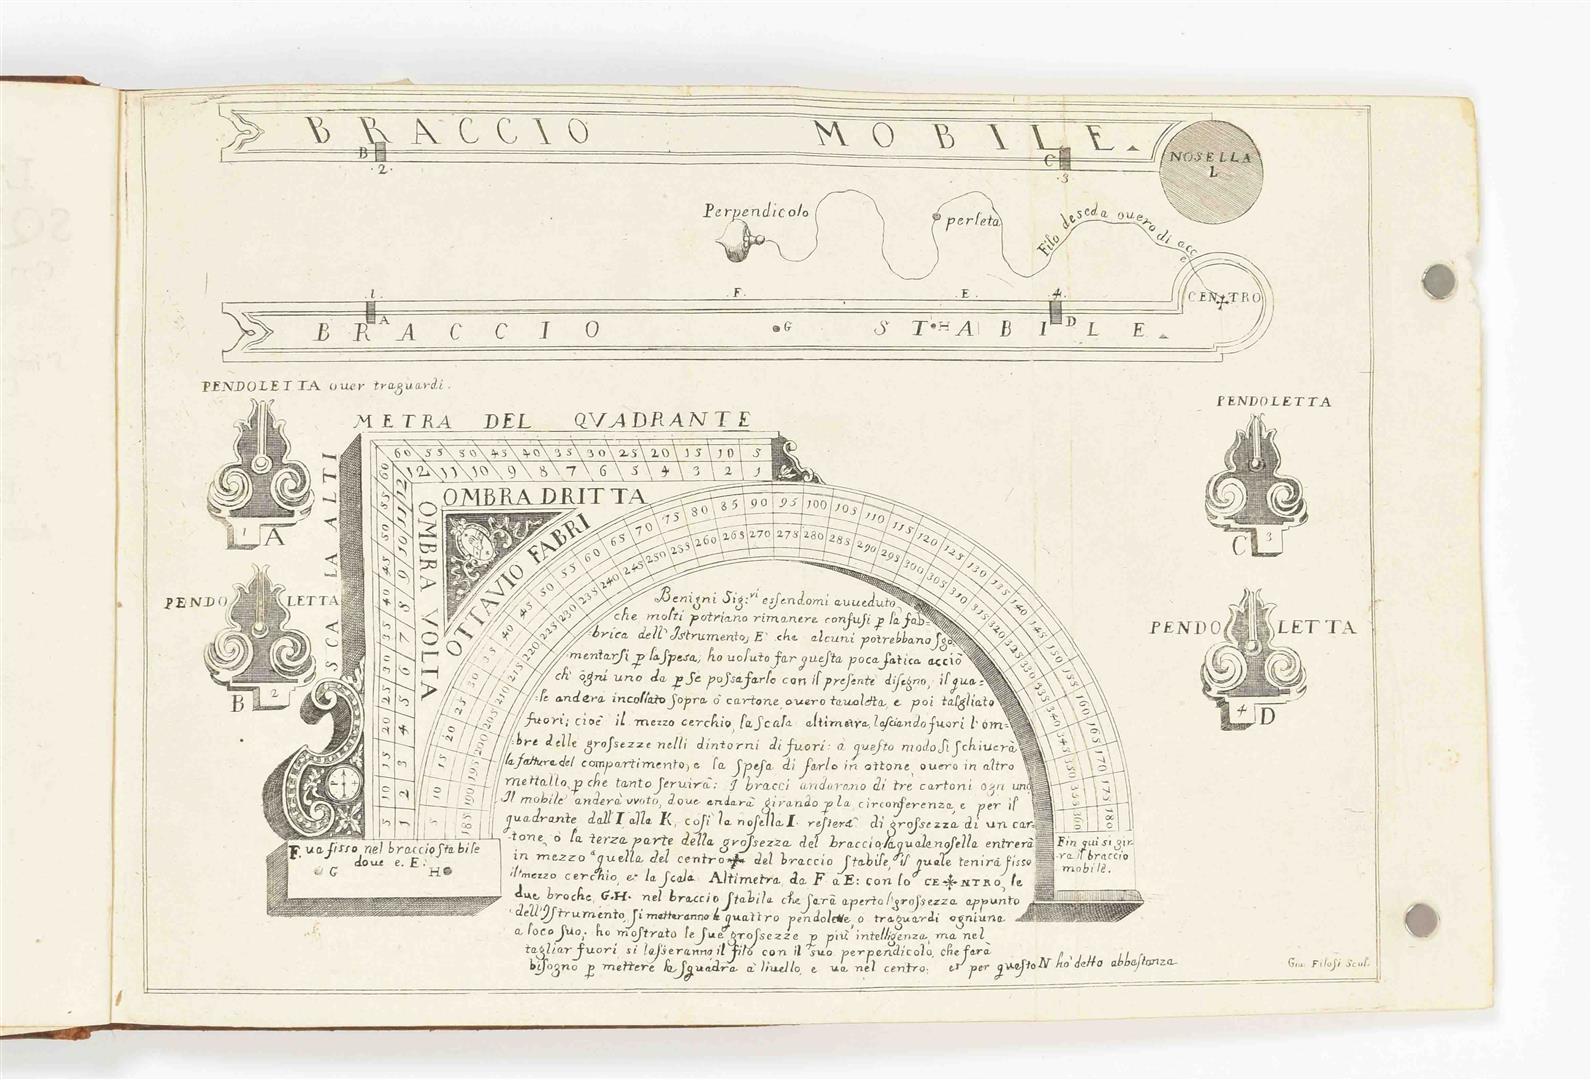 BRACCIO MOBILE.
B
2
C
3
NOSELLA
L
Perpendicolo
perleta
Filo deseda ouero di acc
e
CENTRO
1
F.
E.
4
A
G
H
D
BRACCIO STABILE.
PENDOLETTA ouer traguardi.
1 A
PENDOLETTA
B 2
PENDOLETTA
C 3
PENDOLETTA
4 D
METRA DEL QVADRANTE
60 55 50 45 40 35 30 25 20 15 10 5
12 11 10 9 8 7 6 5 4 3 2 1
OMBRA DRITTA
OMBRA VOLTA
SCALA ALTI
60 55 50 45 40 35 30 25 20 15 10 5
12 11 10 9 8 7 6 5 4 3 2 1
OTTAVIO FABRI
5 10 15 20 25 30 35 40 45 50 55 60 65 70 75 80 85 90 95 100 105 110 115 120 125 130 135 140 145 150 155 160 165 170 175 180
185 190 195 200 205 210 215 220 225 230 235 240 245 250 255 260 265 270 275 280 285 290 295 300 305 310 315 320 325 330 335 340 345 350 355 360
Benigni Sig:ri essendomi auueduto
che molti potriano rimanere confusi p la fab=
brica dell' Istrumento, E' che alcuni potrebbano sgo
mentarsi p la spesa, ho uoluto far questa poca fatica acciò
ch' ògni uno da p se possa farlo con il presente disegno, il qua=
le anderà incollato sopra ò cartone, ouero tauoletta, e poi talgliato
fuori; cioè il mezzo cerchio, la scala altimetra, lasciando fuori l'om=
bre delle grossezze nelli dintorni di fuori: a questo modo si schiuerà
la fattura del compartimento, e la spesa di farlo in ottone, ouero in altro
mettallo, p che tanto seruirà: I bracci anderano di tre cartoni ogn uno
Il mobile anderà vvoto, doue anderà girando p la circonferenza, e per il
quadrante dall' I alla K, così la nosella I. resterà di grossezza di un car=
tone, ò la terza parte della grossezza del braccio, la quale nosella entrerà
in mezzo a quella del centro ✢ del braccio stabile, il quale tenirà fisso
il mezzo cerchio, et la scala Altimetra, da F à E: con lo CE✢NTRO, le
due broche, G.H. nel braccio stabile che sarà aperto l' grossezza appunto
dell' Istrumento, si metteranno le quattro pendolette, o traguardi ogniuna
a loco suo; ho mostrato le sue grossezze p più intelligenza, ma nel
tagliar fuori si lasseranno, il filo con il suo perpendicolo, che farà
bisogno p mettere la squadra à liuello, e ua nel centro; et per questo N ho detto abbastanza
F. ua fisso nel braccio stabile
doue e. E:
G H
Fin qui si gir
ra il braccio
mobile.
Gio: Filosi Scul.